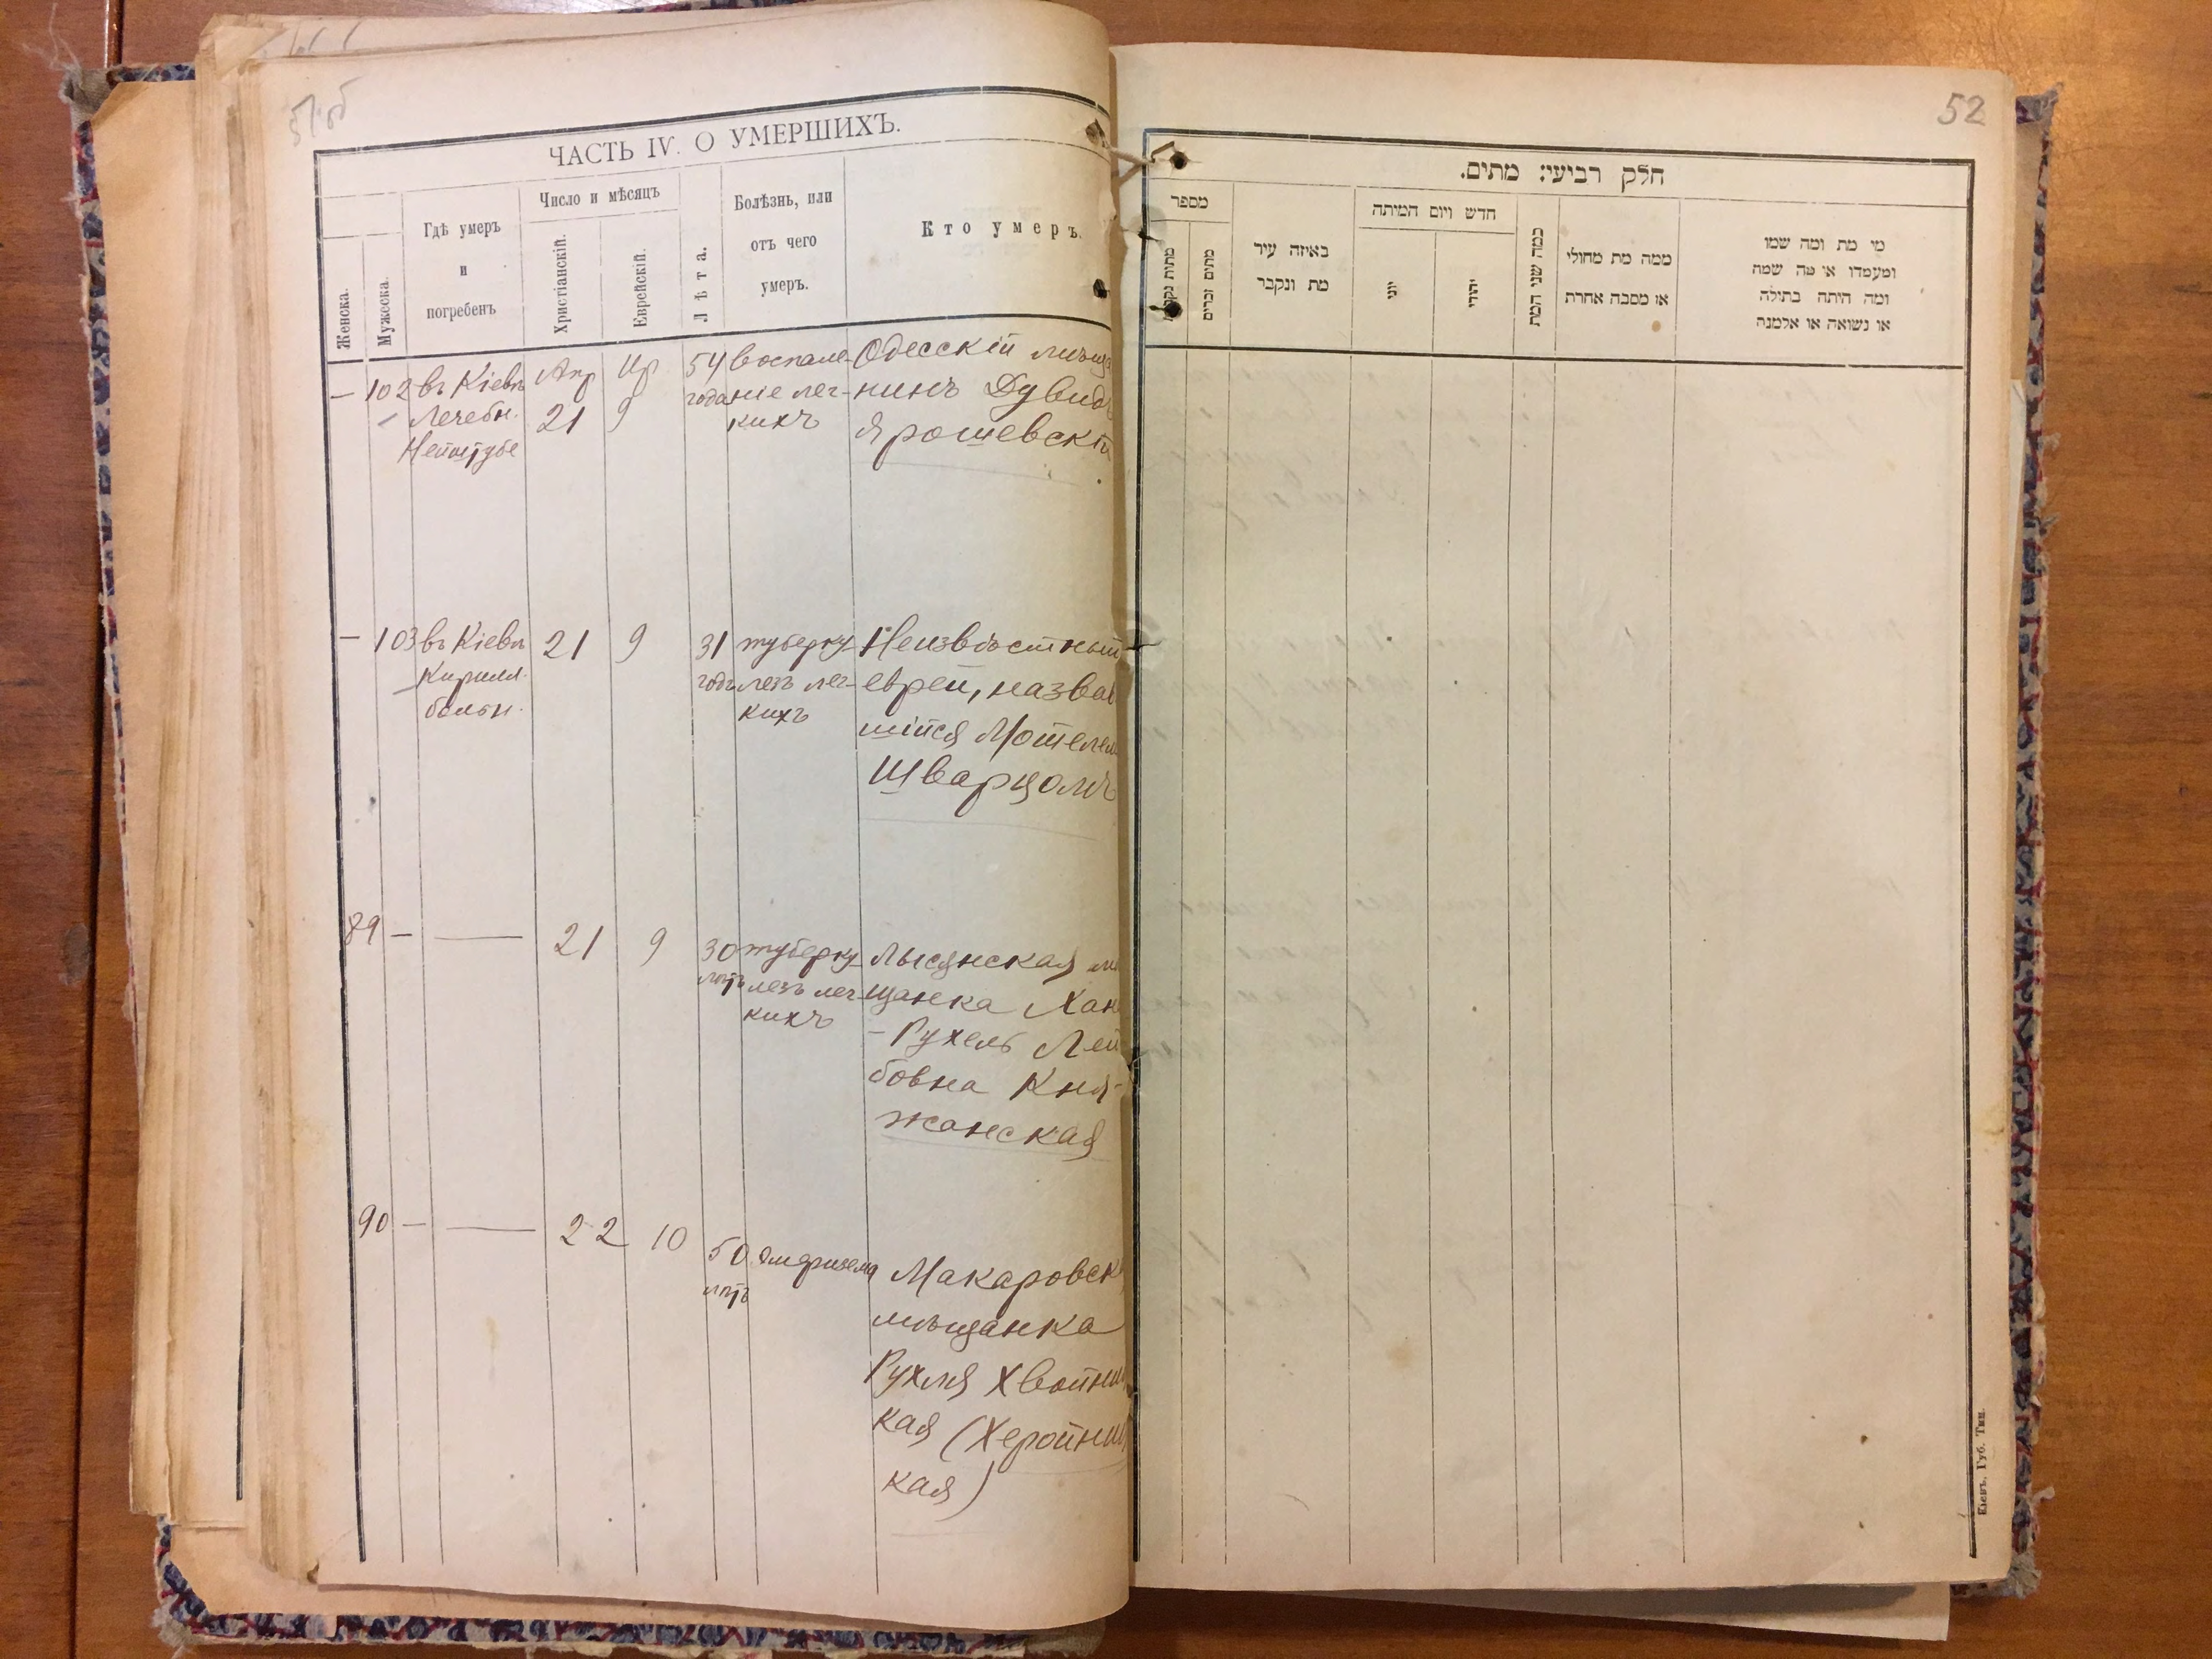 51об
ЧАСТЬ IV. О УМЕРШИХЪ.
Женска.
Мужеска.
Гдѣ умеръ
и
погребенъ
Число и мѣсяцъ
Христіанскій.
Еврейскій.
Лѣта.
Болѣзнь, или
отъ чего
умеръ.
Кто умеръ.
— 102 въ Кіевѣ Апр Ир 54 воспале- Одесскій мѣща
Лечебн. 21 9 года ніе лег- нинъ Дувидъ
кихъ Ярошевскій
— 103 въ Кіевѣ 21 9 31 туберку- Неизвѣстный
Кирилл. годъ лезъ лег- еврей, назвав
больн. кихъ шійся Мотелем
Шварцомъ
89 — — 21 9 30 туберку- Лысянская мѣ
лѣтъ лезъ лег- щанка Хан
кихъ - Рухель Лей
бовна Кня-
жанская
90 — — 22 10 50 эмфизема Макаровск
лѣтъ мѣщанка
Рухля Хвойниц
кая (Херойниц
кая)
52
חלק רביעי: מתים.
מספר
מתים זכרים
באיזה עיר
מת ונקבר
חדש ויום המיתה
יוני
יהודי
כמה שני המת
ממה מת מחולי
או מסבה אחרת
מי מת ומה שמו
ומעמדו או מה שמה
ומה היתה בתולה
או נשואה או אלמנה
Кіевъ, Губ. Тип.